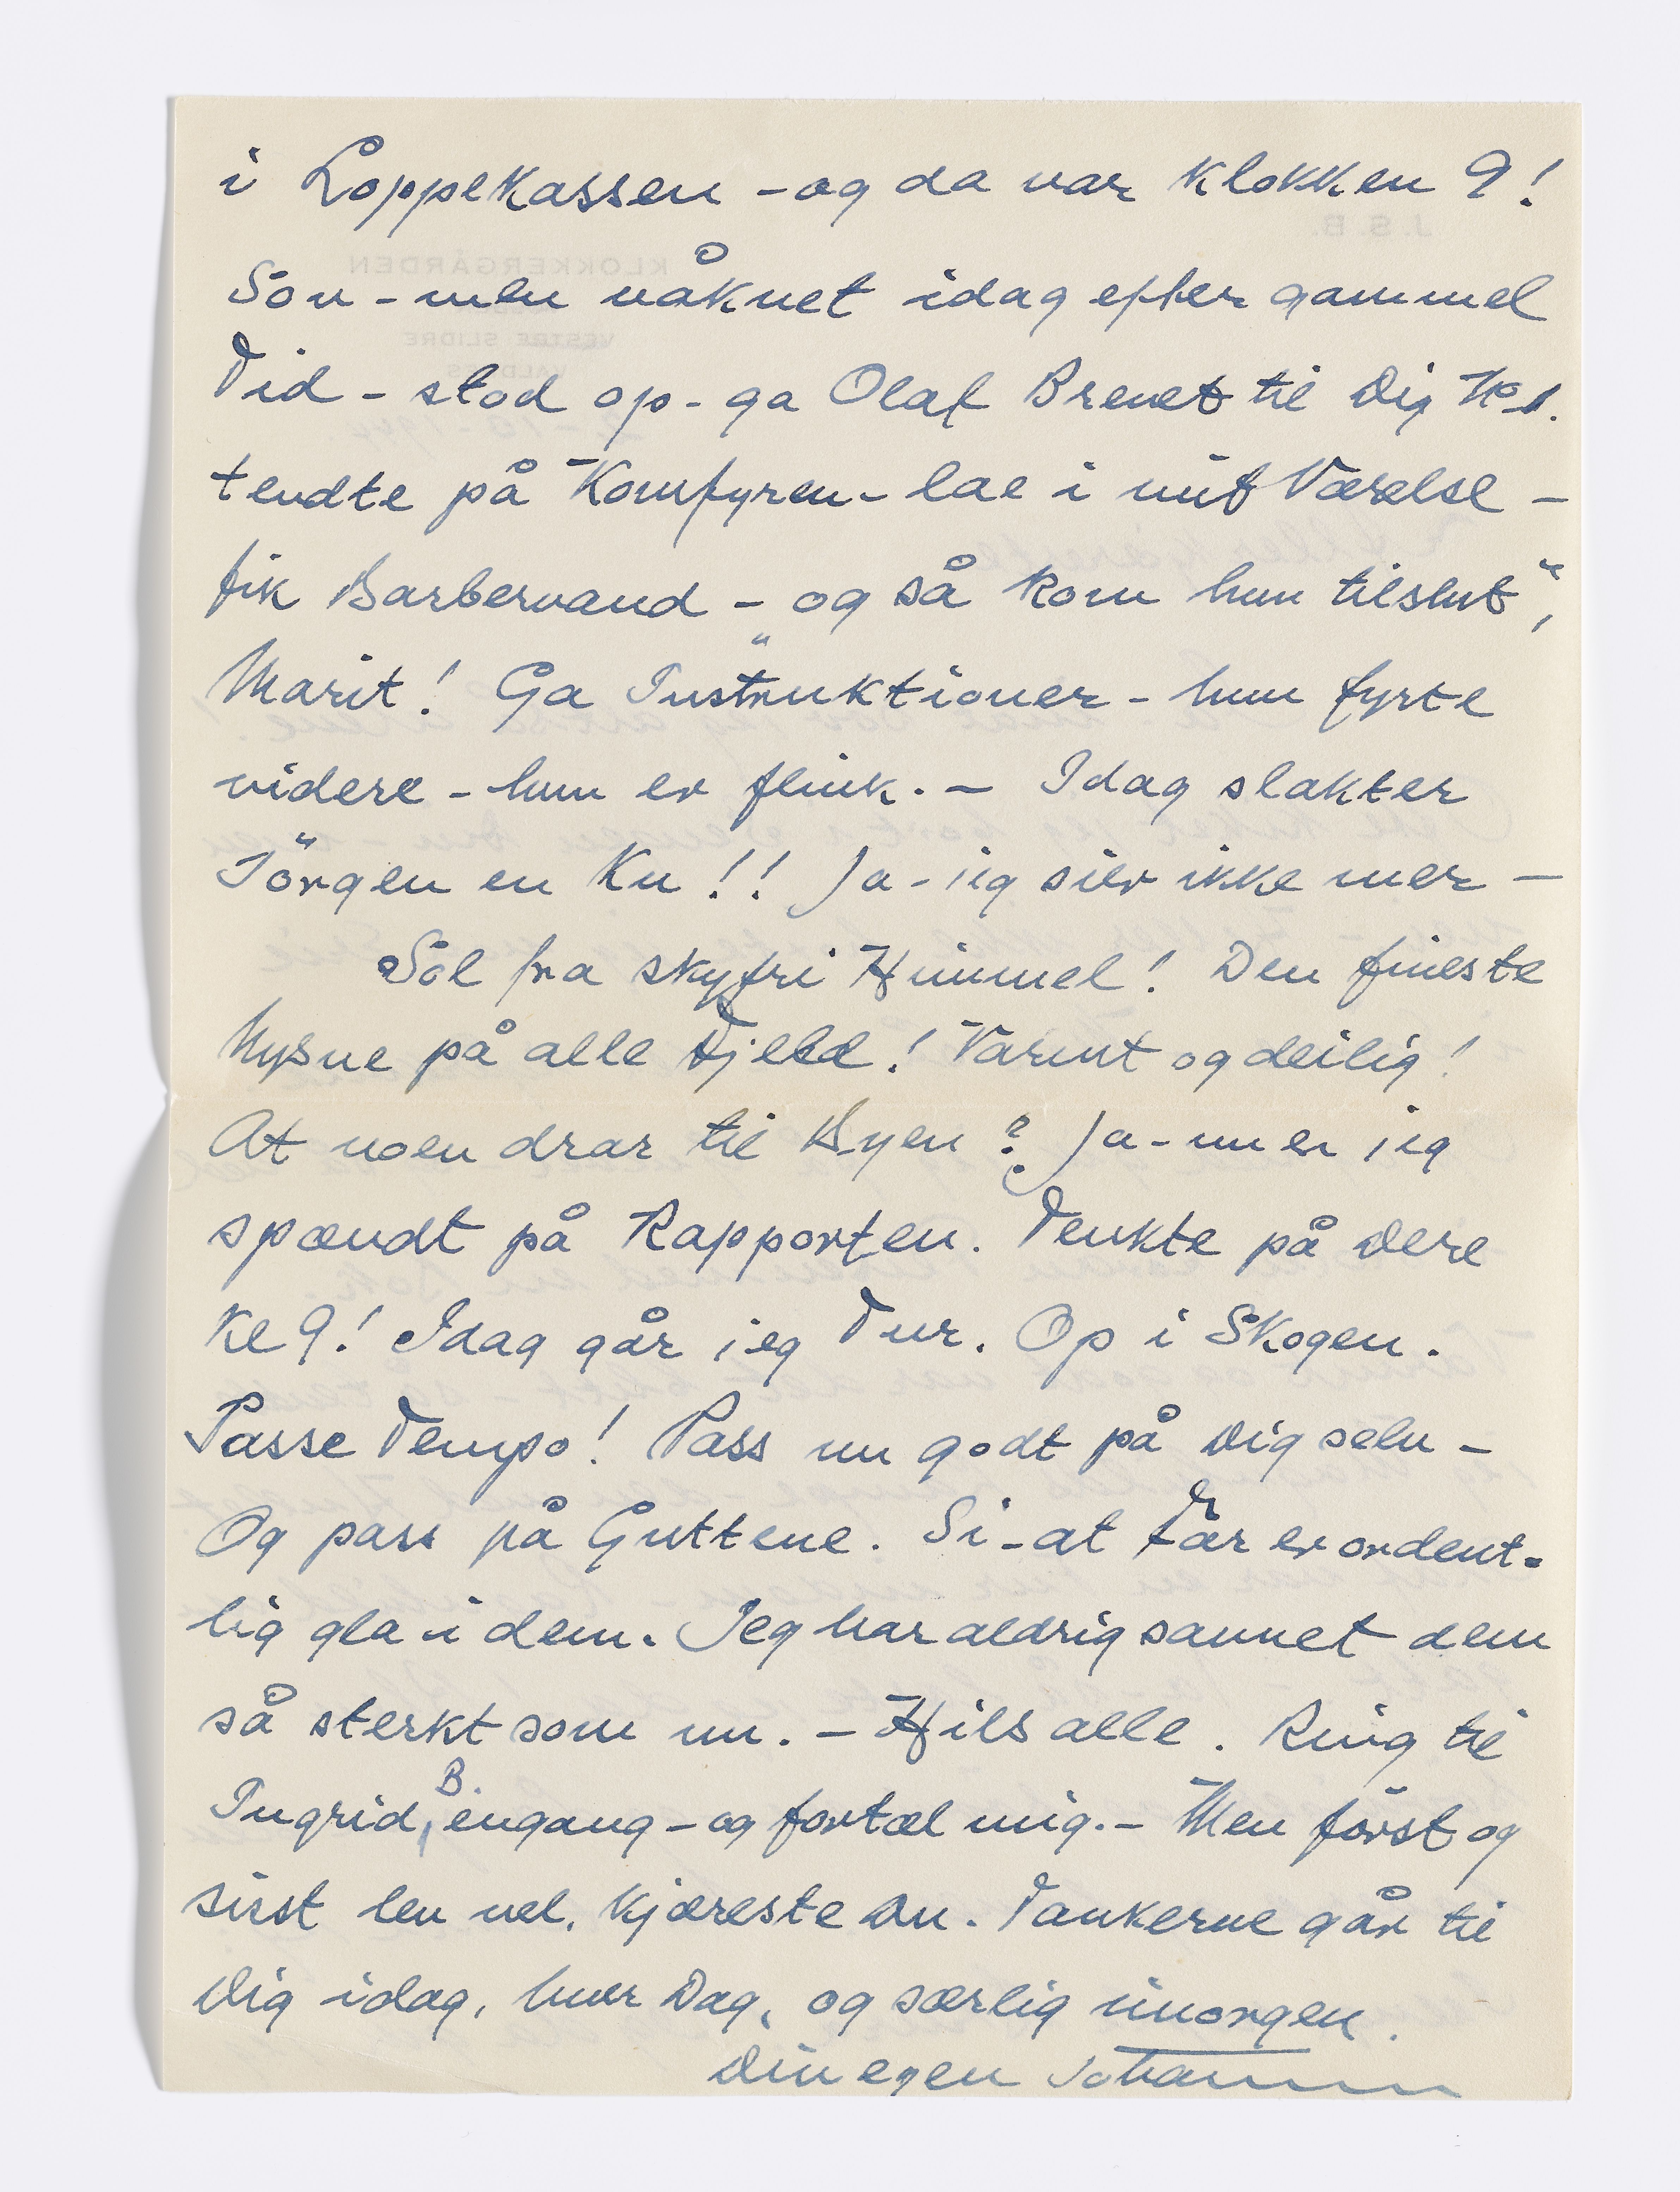 i Loppekassen - og da var klokken 9!
Sov - men våknet idag efter gammel
Tid - stod op - ga Olaf Brevet til Dig No 1.
tendte på Komfyren - lae i mit Værelse -
fik Barbervand - og så kom hun tilslut",
Marit! Ga "Instruktioner - hun fyrte
videre - hun er flink. - Idag slakter
Jörgen en Ku!! Ja - jeg sier ikke mer -
Sol fra skyfri Himmel! Den fineste
Nysne på alle Fjeld! Varmt og deilig!
At noen drar til Byen? Ja - nu er jeg
spændt på Rapporten. Tenkte på Dere
Kl 9! Idag går jeg Tur. Op i Skogen.
Passe Tempo! Pass nu godt på Dig selv -
Og pass på Guttene. Si - at Far er ordent-
lig gla i dem. Jeg har aldrig savnet dem
så sterkt som nu. - Hils alle. Ring til
Ingrid B. engang - og fortæl mig. - Men først og
sisst lev vel, Kjæreste Du. Tankerne går til
Dig idag, hver Dag, og særlig imorgen.
Din egen Johannes
J. S. B.
KLOKKERGÅRDEN
VESTRE SLIDRE
VALDRES